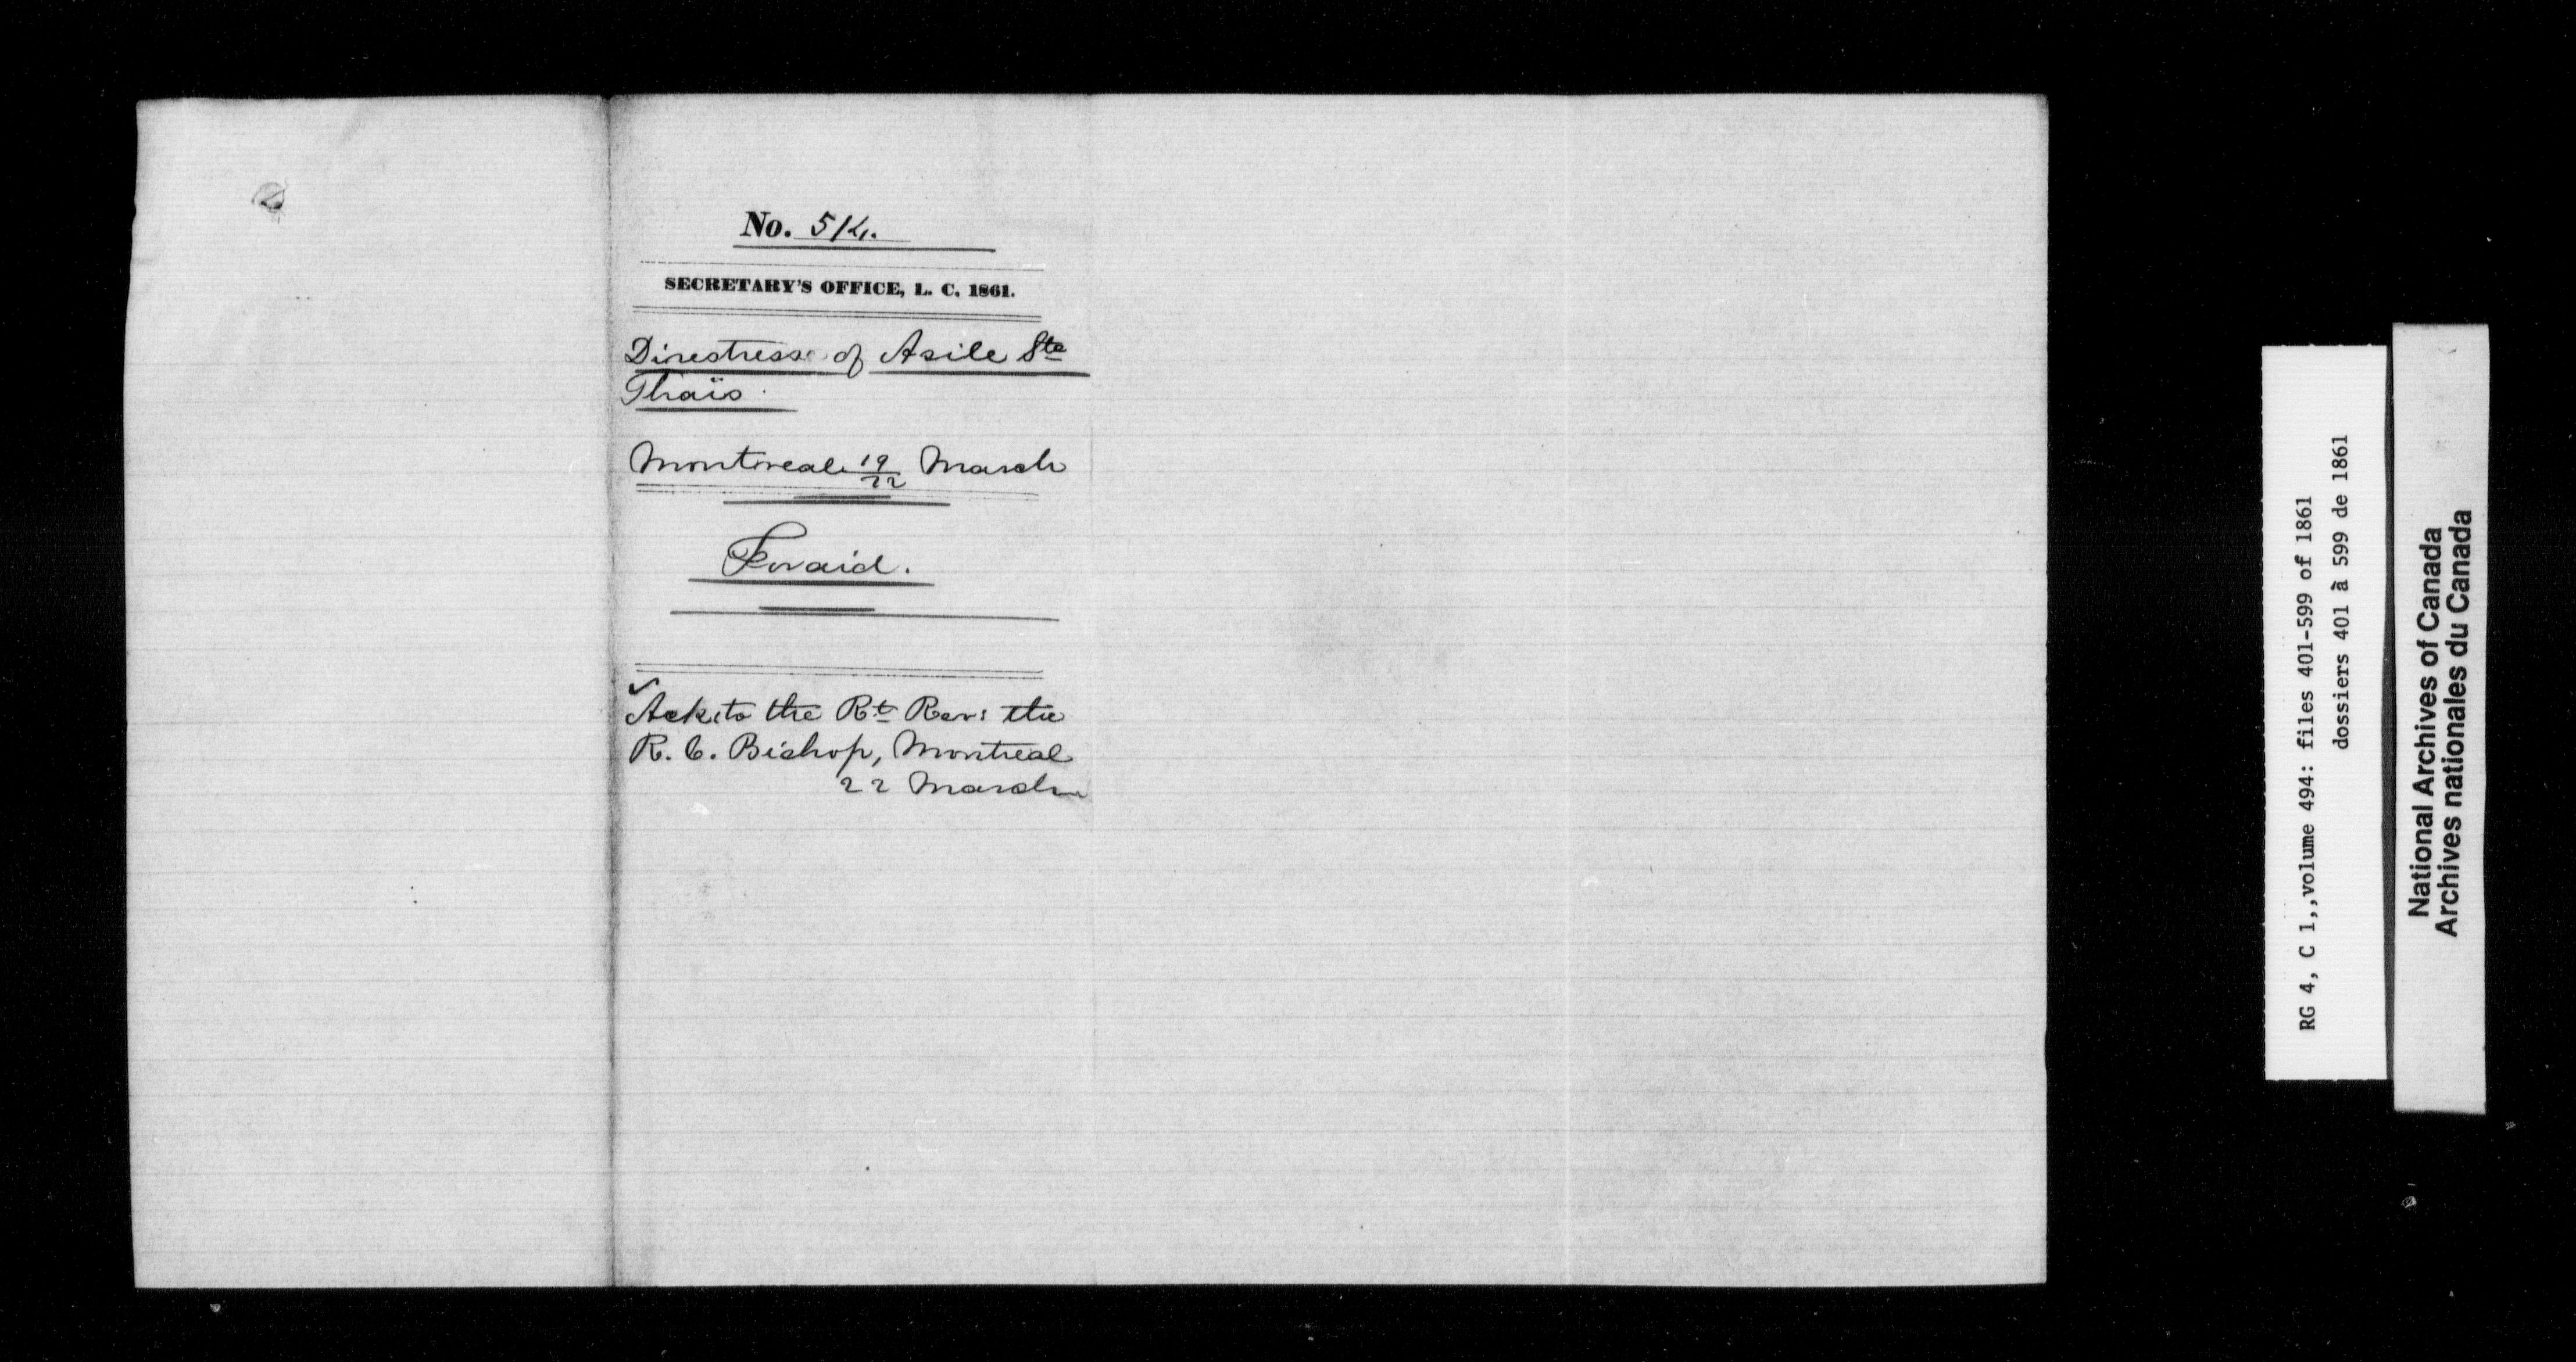 No. 514.
SECRETARY'S OFFICE, L. C. 1861.
Directress of Asile Ste
Thaïs
Montreal 19/22 March
For aid.
Ack: to the Rt Rev: the
R. C. Bishop, Montreal
22 March
RG 4, C 1,,volume 494: files 401-599 of 1861
dossiers 401 à 599 de 1861
National Archives of Canada
Archives nationales du Canada